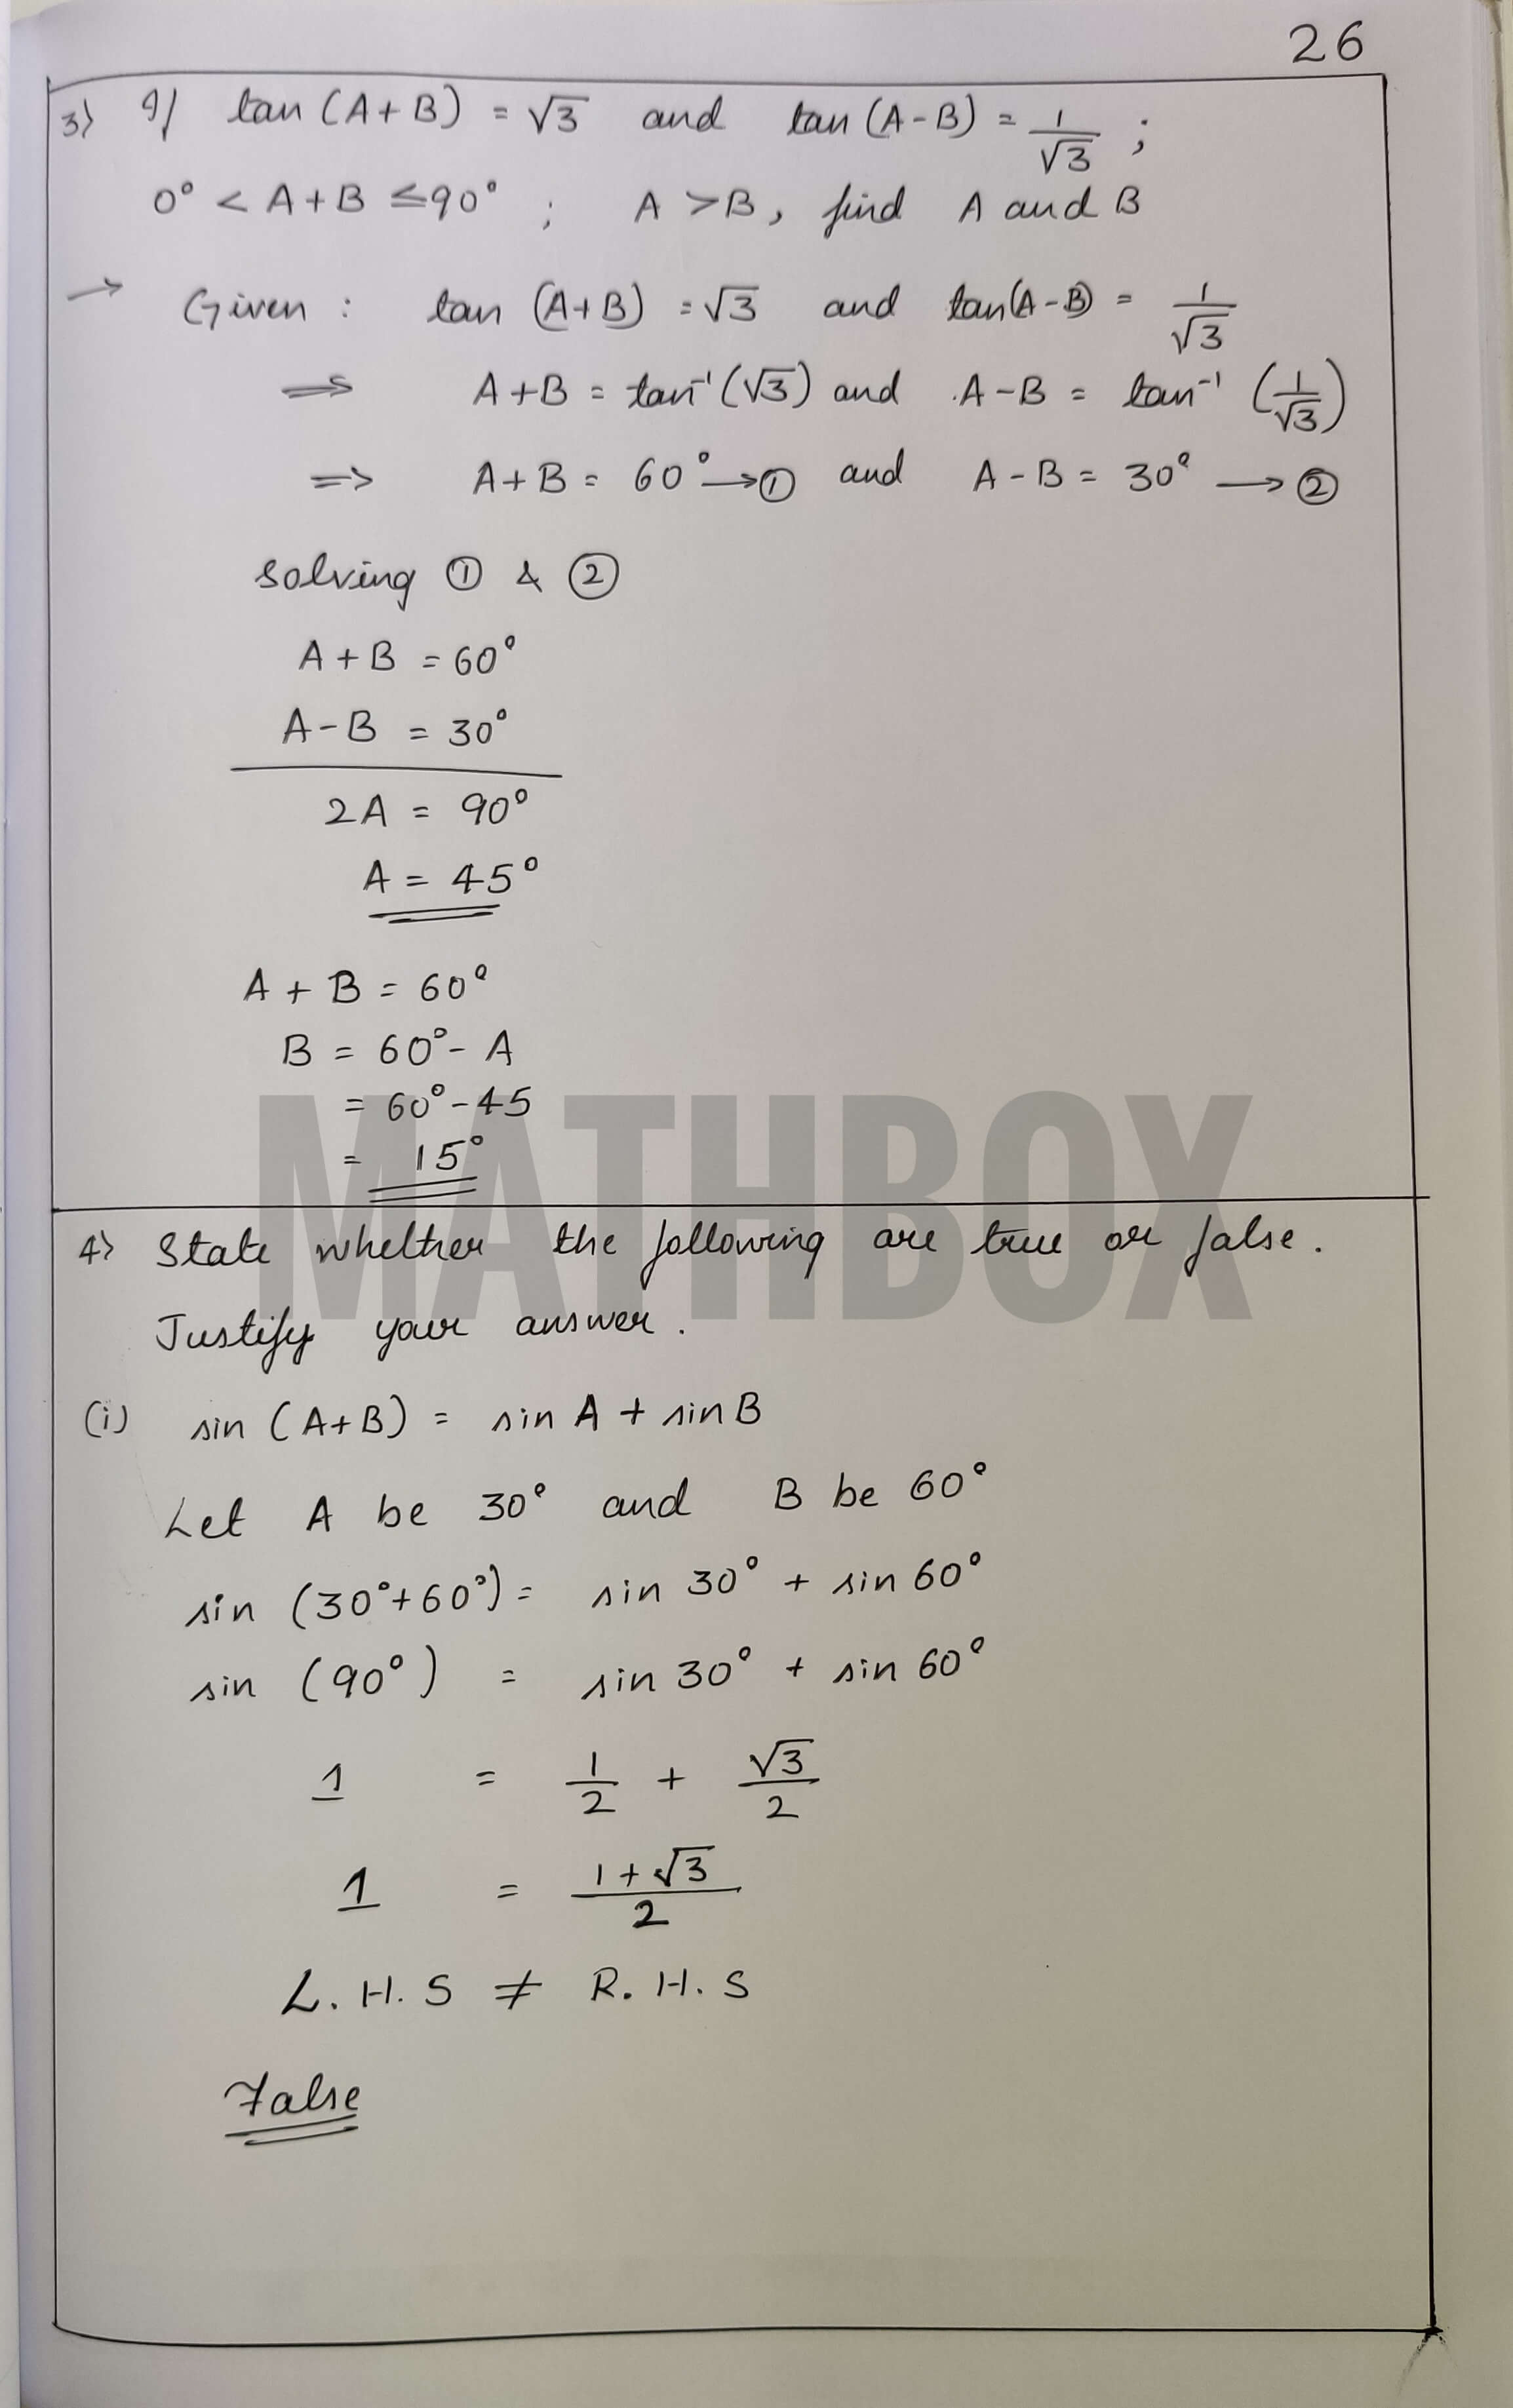 26
3) If tan (A+B) = √3 and tan (A-B) = 1/√3 ;
0° < A+B ≤ 90° ; A > B, find A and B
→ Given : tan (A+B) = √3 and tan(A-B) = 1/√3
⇒ A+B = tan⁻¹(√3) and A-B = tan⁻¹ (1/√3)
=> A+B = 60° → ① and A-B = 30° → ②
solving ① & ②
A + B = 60°
A - B = 30°
2A = 90°
A = 45°
A + B = 60°
B = 60° - A
= 60° - 45
= 15°
MATHBOX
4) State whether the following are true or false.
Justify your answer.
(i) sin (A+B) = sin A + sin B
Let A be 30° and B be 60°
sin (30°+60°) = sin 30° + sin 60°
sin (90°) = sin 30° + sin 60°
1 = 1/2 + √3/2
1 = (1+√3)/2
L.H.S ≠ R.H.S
False